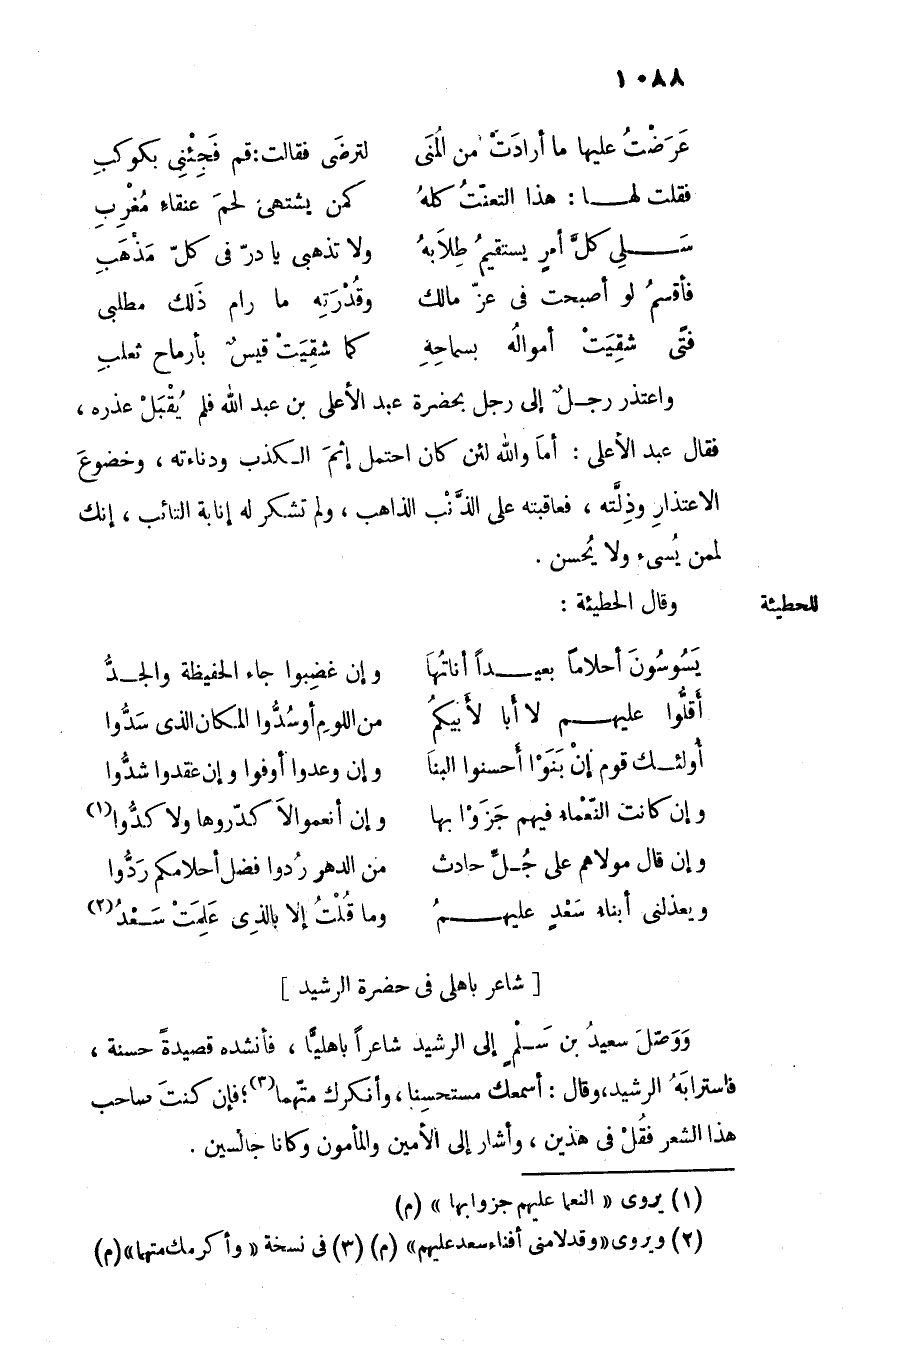 ١٠٨٨
عَرَضْتُ عليها ما أرادَتْ من المُنَى لترضَى فقالت: قم فَجِئْنِى بكوكبِ
فقلت لهـا : هذا التعنّتُ كلهُ كمن يشتهى لحمَ عنقاء مُغْرِبِ
سَـلِى كلَّ أمرٍ يستقيمُ طِلَابهُ ولا تذهبى يا درّ فى كلّ مَذْهَبِ
فأقسمُ لو أصبحت فى عزّ مالك وقُدْرَتِه ما رام ذَلك مطلبى
فتًى شقِيَتْ أموالُه بسماحِهِ كما شقِيَتْ قيسٌ بأرماح ثعلبِ
واعتذر رجـلٌ إلى رجل بحضرة عبد الأعلى بن عبد الله فلم يُقْبَلْ عذره ،
فقال عبد الأعلى : أمَا والله لئن كان احتمل إثمَ الـكذب ودناءته ، وخضوعَ
الاعتذارِ وذِلَّته ، فعاقبته على الذَّنْب الذاهب ، ولم تشكر له إنابة التائب ، إنك
لممن يُسىء ولا يُحسن .
للحطيئة وقال الحطيئة :
يَسُوسُونَ أحلاماً بعيـداً أناتُهَا وإن غضِبوا جاء الحفيظة والجـدُّ
أَقلُّوا عليهـم لا أبا لأَبيكمُ من اللومِ أو سُدُّوا المكان الذى سَدُّوا
أُولئـك قوم إنْ بَنَوْا أَحسنوا البنَا وإن وعدوا أوفوا وإن عقدوا شدُّوا
وإن كانت النّعْماء فيهم جَزَوْا بها وإن أنعموا لاَ كدّروها ولا كدُّوا(١)
وإن قال مولاهم على جُـلِّ حادث من الدهر رُدوا فضل أحلامكم رَدُّوا
ويعذلنى أبناء سَعْدٍ عليهـمُ وما قُلْتُ إلا بالذِى عَلِمَتْ سَـعْدُ(٢)
[ شاعر باهلى فى حضرة الرشيد ]
وَوَصّلَ سعيدُ بن سَـلْمٍ إلى الرشيد شاعراً باهليًّا ، فأنشده قصيدةً حسنة ،
فاسترابَهُ الرشيد، وقال : أسمعك مستحسِنا ، وأنكرك متّهما(٣)؛ فإن كنتَ صاحب
هذا الشعر فقُلْ فى هذين ، وأشار إلى الأمين والمأمون وكانا جالسين .
(١) يروى « النعما عليهم جزوا بها » (م)
(٢) ويروى «وقد لامنى أفناء سعد عليهم» (م) (٣) فى نسخة « وأكرمك متهما» (م)